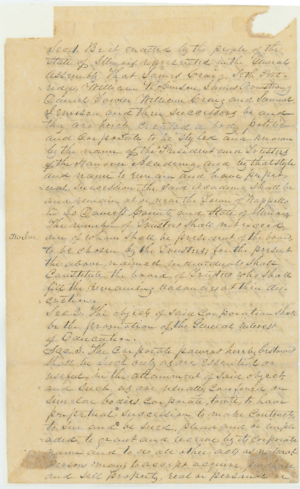 Sec 1. Be it enacted by the people of the
State of Illinois represented in the General
Assembly That James Craig,
William Armstrong
Daniel William Craig and Samuel
and their successors be and
they are hereby created a body politic
and corporate to be styled and known
by the name of the President and Trustees
of the Hanover Academy and by that style
and name to remain and have perpet
ual succession. The said Academy shall be
and remain at or near the Town of
in Jo Daviess County and State of Illinois
The number of Trustees shall not exceed
one of whom shall be president of the board
to be chosen by the Trustees for the present
the above named individuals shall
Constitute the board of Trustees who shall
fill the remaining vacancies at their dis
cretion.
Sec 2. The object of said Corporation shall
be the promotion of the General interest
of Education.
Sec 3. The Corporate powers hereby bestowed
shall be such only as are essential or
useful in the attainment of said object
and such as are usually conferred on
similar bodies corporate, to wit: to have
perpetual succession to make contracts
to sue and be sued, plead and be imple
aded to grant and receive by its corporate
name and to do all other acts as natural
persons may to accept acquire purchase
and sell property, real or personal or